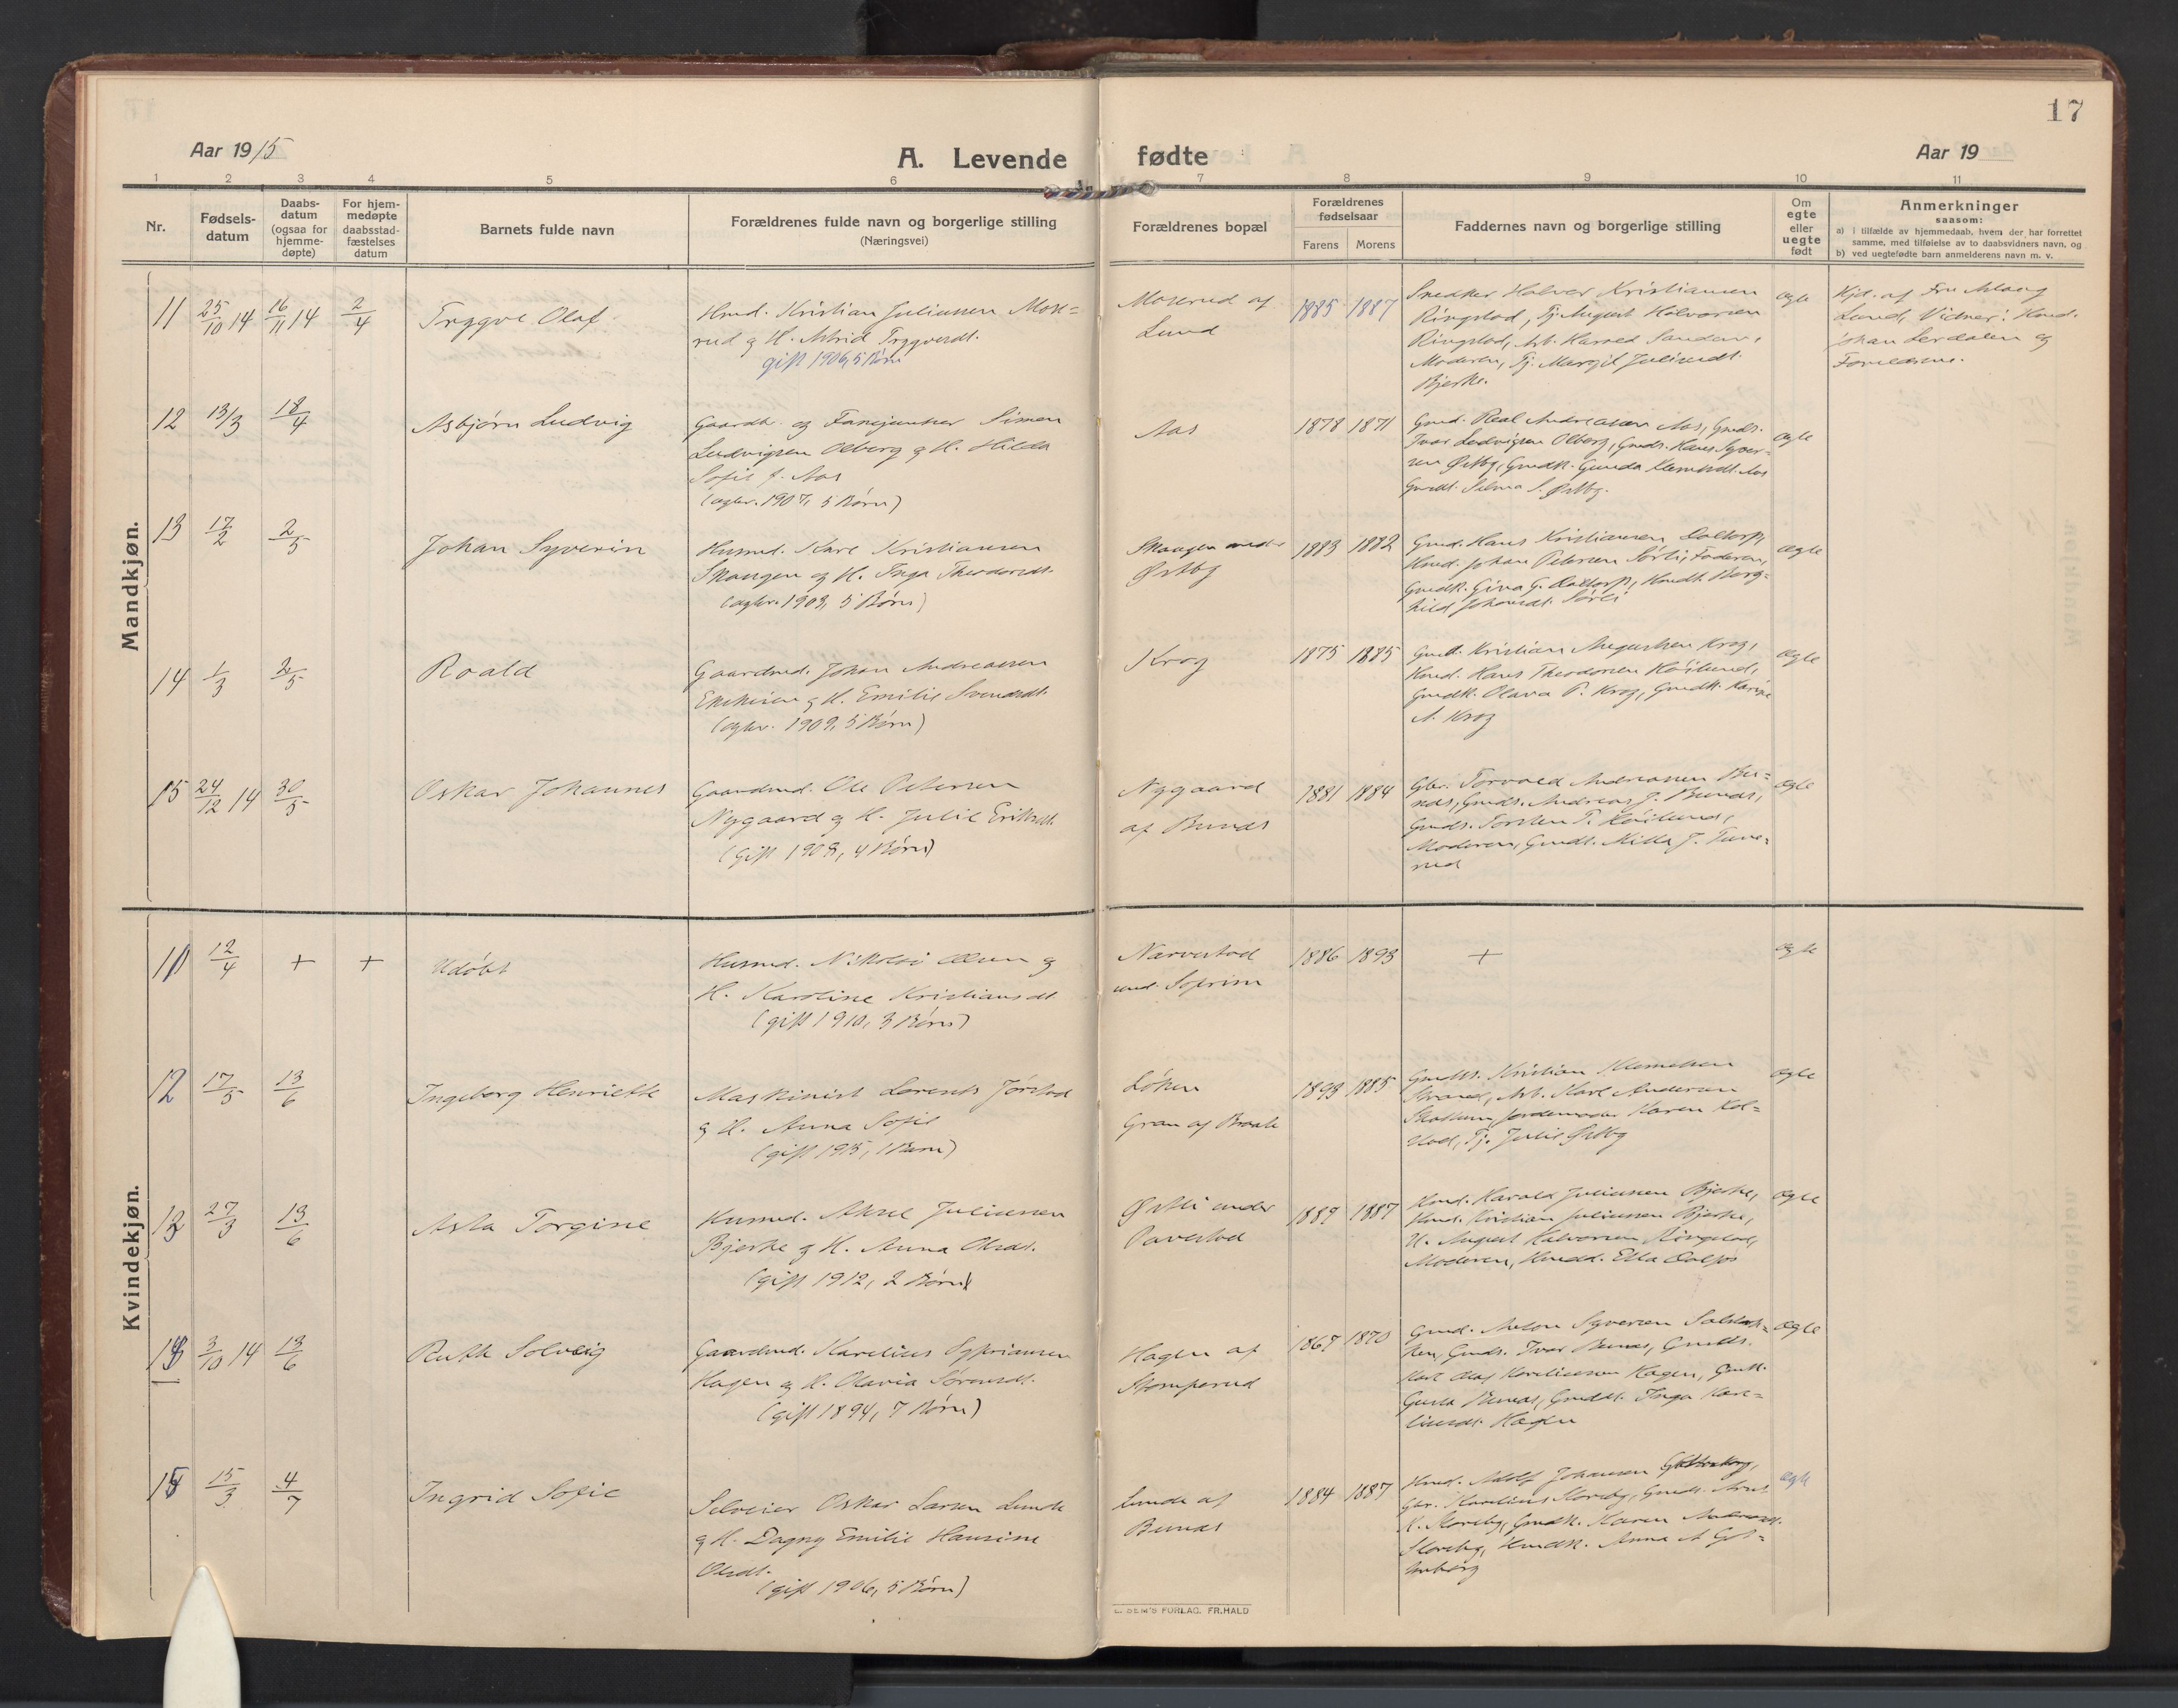 17
Aar 1915
A. Levende fødte
Aar 19
1 2 3 4 5 6 7 8 9 10 11
Nr.
Fødsels-
datum
Daabs-
datum
(ogsaa for
hjemme-
døpte)
For hjem-
medøpte
daabsstad-
fæstelses
datum
Barnets fulde navn
Forældrenes fulde navn og borgerlige stilling
(Næringsvei)
Forældrenes bopæl
Forældrenes
fødselsaar
Farens Morens
Faddernes navn og borgerlige stilling
Om
egte
eller
uegte
født
Anmerkninger
saasom:
a) i tilfælde av hjemmedaab, hvem der har forrettet
samme, med tilføielse av to daabsvidners navn, og
b) ved uegtefødte barn anmelderens navn m. v.
Mandkjøn.
11 25/10 14 16/11 14 2/4 Trygve Olaf
Hmd. Kristian Juliussen Mose=
rud og H. Astrid Trygvesdt.
gift 1906, 5 Børn
Moserud af
Lund
1885 1887
Snedker Halvor Kristiansen
Ringstad, Tj. August Halvorsen
Ringstad, Arb. Harald
Moderen, Tj. Margit Juliusdt.
Bjerke.
ægte
Hjd. af Fru Aslaug
Lund, Vidner: Hmd.
Johan Lerdalen og
Forældrene.
12 13/3 18/4 Asbjørn Ludvig
Gaardbr. og Fanejunker Simen
Ludvigsen Olberg og H. Hilda
Sofie f. Aas
(agtev. 1907, 5 Børn)
Aas
1878 1871
Gmd. Real Andreassen Aas, Gmds.
Ivar Ludvigsen Olberg, Gmds. Hans Syver-
sen Østby, Gmdk. Gunda Klemetsdt. Aas
Gmdt. Selma S. Østby.
ægte
13 17/2 2/5 Johan Syverin
Husmd. Karl Kristiansen
Skaugen og H. Inga Theodorsdt.
(agtev. 1903, 5 Børn)
Skaugen under
Østby
1883 1882
Gmd. Hans Kristiansen Daltorp,
Hmd. Johan Petersen Sørli, Faderen,
Gmdk. Gina G. Daltorp, Hmdt. Borg-
hild Johansdt. Sørli
ægte
14 1/3 2/5 Roald
Gaardmd. Johan Andreassen
H. Emilie Svendsdt.
(agtev. 1909, 5 Børn)
Krog
1875 1885
Gmd. Kristian Augustsen Krog,
Hmd. Hans Theodorsen Høilund,
Gmdk. Olava P. Krog, Gmdk. Karine
A. Krog
ægte
15 24/12 14 30/5 Oskar Johannes
Gaardmd. Ole Petersen
Nygaard og H. Julie Eriksdt.
(gift 1903, 4 Børn)
Nygaard
af Bunæs
1881 1884
Gbr. Torvald Andreassen Bu-
næs, Gmds. Andreas J. Bunæs,
Gmds. Torsten T. Høilund,
Moderen, Gmdt. Milla J. Tune-
rud
ægte
Kvindekjøn.
11 12/4 + + Udøbt
Husmd. Nikolai Olsen og
H. Karoline Kristiansdt.
(gift 1910, 3 Børn)
Narvestad
und. Soprim
1886 1893
+
ægte
12 17/5 13/6 Ingeborg Henriette
Maskinist Lorents Jørstad
og H. Anna Sofie
(gift 1915, 1 Barn)
Løken
Gran af Braate
1893 1885
Gmdts. Kristian Klemetsen
Strand, Arb. Karl Andersen
Skottum, Jordemoder Karen Kol-
stad, Tj. Julie Østby
ægte
13 27/3 13/6 Asta Torgine
Husmd. Aksel Juliussen
Bjerke og H. Anna Olsdt.
(gift 1912, 2 Børn)
Østli under
Tavestad
1889 1887
Hmd. Harald Juliussen Bjerke,
Hmds. Kristian Juliussen Bjerke,
U. August Halvorsen Ringstad,
Moderen, Hmdd. Ella
ægte
14 3/10 14 13/6 Ruth Solveig
Gaardmd. Karelius Sypriansen
Hagen og H. Olavia Sørensdt.
(gift 1894, 7 Børn)
Hagen af
Stomperud
1867 1870
Gmd. Anton Syversen
Gmds. Ivar Bunæs, Gmdts.
Karl Olaf Kareliussen Hagen, Gmdt.
Gusta Bunæs, Gmdt. Inga Kare-
liusdt. Hagen
ægte
15 15/3 4/7 Ingrid Sofie
Selveier Oskar Larsen Lunde
og H. Dagny Emilie Hansine
Olsdt.
(gift 1906, 5 Børn)
Lunde af
Bunæs
1884 1887
Hmd. Adolf Johansen Gøteborg,
Gbr. Karelius Storeby, Gmds.
K. Storeby, Gmdk. Karen
Storeby, Hmdk. Anna A Gø-
teborg
ægte
E. SEM'S FORLAG. FR.HALD